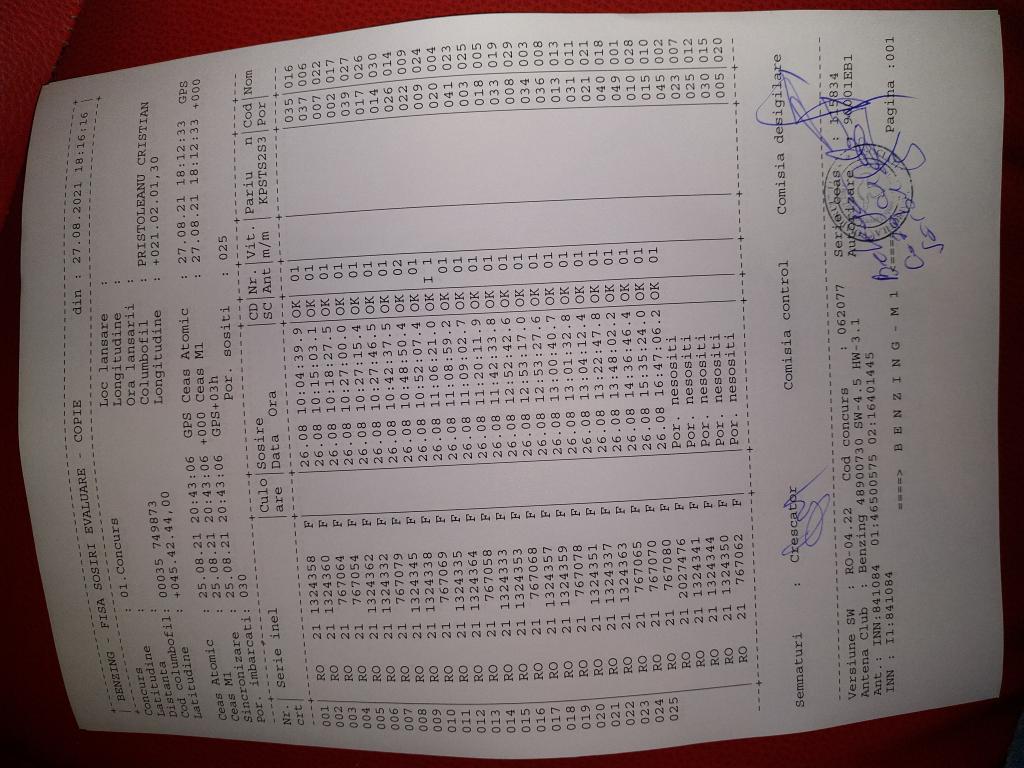 BENZING - FISA SOSIRI EVALUARE - COPIE din : 27.08.2021 18:16:16
Concurs : 01.Concurs Loc lansare :
Latitudine : Longitudine :
Distanta : Ora lansarii :
Cod columbofil: 00035 749873 Columbofil : PRISTOLEANU CRISTIAN
Latitudine : +045.42.44,00 Longitudine : +021.02.01,30
Ceas Atomic : 25.08.21 20:43:06 GPS Ceas Atomic : 27.08.21 18:12:33 GPS
Ceas M1 : 25.08.21 20:43:06 +000 Ceas M1 : 27.08.21 18:12:33 +000
Sincronizare : 25.08.21 20:43:06 GPS+03h
Por. imbarcati: 030 Por. sositi : 025
Nr. Serie inel Culo Sosire CD Nr. Vit. Pariu n Cod Nom
crt are Data Ora SC Ant m/m KPSTS2S3 Por
001 RO 21 1324358 F 26.08 10:04:39.9 OK 01 035 016
002 RO 21 1324360 F 26.08 10:15:03.1 OK 01 037 006
003 RO 21 767064 F 26.08 10:18:27.5 OK 01 007 022
004 RO 21 767054 F 26.08 10:27:00.0 OK 01 002 017
005 RO 21 1324362 F 26.08 10:27:15.4 OK 01 039 027
006 RO 21 1324332 F 26.08 10:27:46.5 OK 01 017 026
007 RO 21 767079 F 26.08 10:42:37.5 OK 01 014 030
008 RO 21 1324345 F 26.08 10:48:50.4 OK 02 026 014
009 RO 21 1324338 F 26.08 10:52:07.4 OK 01 022 009
010 RO 21 767069 F 26.08 11:06:21.0 OK I 1 009 024
011 RO 21 1324335 F 26.08 11:08:59.2 OK 01 020 004
012 RO 21 1324364 F 26.08 11:09:02.7 OK 01 041 023
013 RO 21 767058 F 26.08 11:20:11.9 OK 01 025
014 RO 21 1324333 F 26.08 11:42:33.8 OK 01 018 005
015 RO 21 1324353 F 26.08 12:52:42.6 OK 01 033 019
016 RO 21 767068 F 26.08 12:53:17.0 OK 01 008 029
017 RO 21 1324357 F 26.08 12:53:27.6 OK 01 034 003
018 RO 21 1324359 F 26.08 13:00:40.7 OK 01 036 008
019 RO 21 767078 F 26.08 13:01:32.8 OK 01 013 013
020 RO 21 1324351 F 26.08 13:04:12.4 OK 01 031 011
021 RO 21 1324337 F 26.08 13:22:47.8 OK 01 021 021
022 RO 21 1324363 F 26.08 13:48:02.2 OK 01 040 018
023 RO 21 767065 F 26.08 14:36:46.4 OK 01 049 001
024 RO 21 767070 F 26.08 15:35:24.0 OK 01 010 028
025 RO 21 767080 F 26.08 16:47:06.2 OK 01 015 010
RO 21 2027476 F Por. nesositi 045 002
RO 21 1324341 F Por. nesositi 023 007
RO 21 1324344 F Por. nesositi 025 012
RO 21 1324350 F Por. nesositi 030 015
RO 21 767062 F Por. nesositi 005 020
Semnaturi : Crescator Comisia control Comisia desigilare
Versiune SW : RO-04.22 Cod concurs : 062077 Serie Ceas : 115834
Antena Club : Benzing 48900730 SW-4.5 HW-3.1 Autorizare : 91001EB1
Ant.: INN:841084 01:46500575 02:16401445
INN : I1:841084
====> B E N Z I N G - M 1 <==== Pagina :001